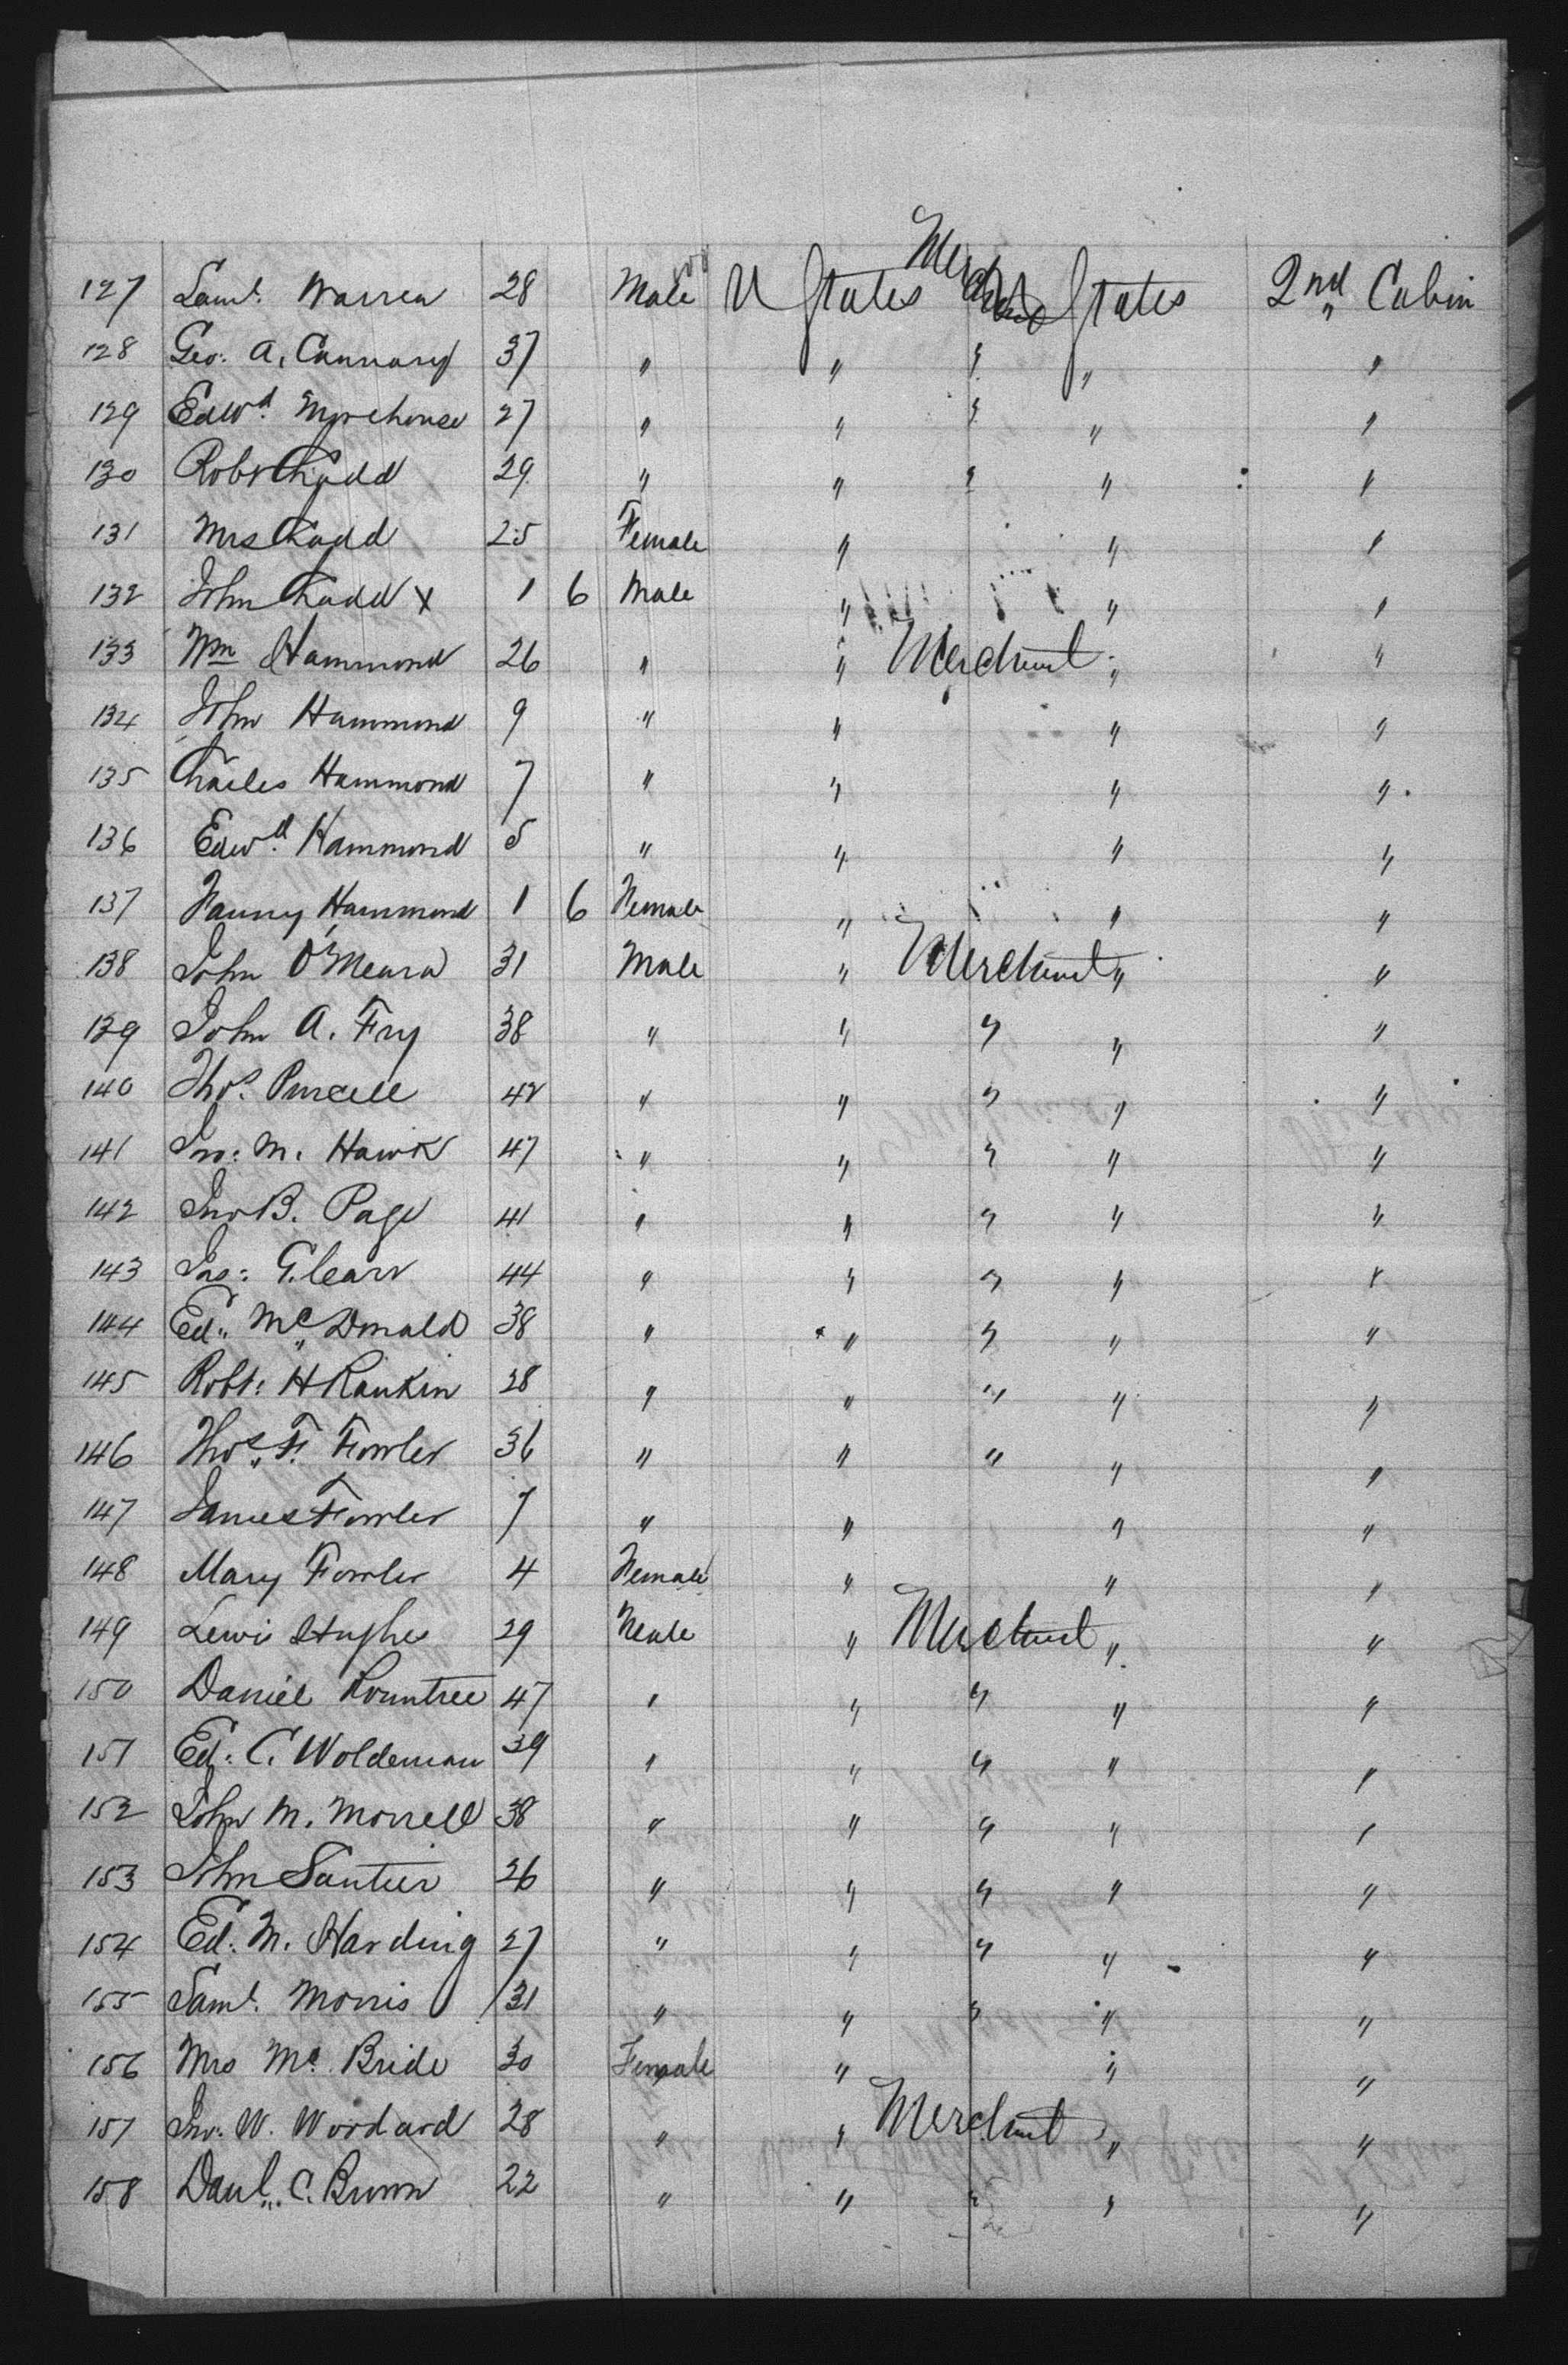 127 Saml. Warren 28 Male U States Merchant States 2nd Cabin
128 Geo: A. Cannary 37 " " " " "
129 Edwd. Morehouse 27 " " " " "
130 Robt Chadd 29 " " " " "
131 Mrs Chadd 25 Female " " "
132 John Chadd x 1 6 Male " " "
133 Wm Hammond 26 " " Merchant " "
134 John Hammond 9 " " " "
135 Charles Hammond 7 " " " "
136 Edwd. Hammond 5 " " " "
137 Fanny Hammond 1 6 Female " " "
138 John O'Meara 31 Male " Merchant " "
139 John A. Fry 38 " " " " "
140 Thos. Purcell 42 " " " " "
141 Jno: M. Hawk 47 " " " " "
142 Jno B. Page 41 " " " " "
143 Jas: G. Carr 44 " " " " "
144 Ed. McDonald 38 " " " " "
145 Robt: H Rankin 28 " " " " "
146 Thos. F. Fowler 36 " " " " "
147 James Fowler 7 " " " "
148 Mary Fowler 4 Female " " "
149 Lewis Hughes 29 Male " Merchant " "
150 Daniel Rountree 47 " " " " "
151 Ed: C. Woldeman 39 " " " " "
152 John M. Morrell 38 " " " " "
153 John Santier 26 " " " " "
154 Ed: M. Harding 27 " " " " "
155 Saml. Morris 31 " " " " "
156 Mrs Mc Bride 30 Female " " "
157 Jno: W. Woodard 28 " " Merchant " "
158 Danl. C. Brown 22 " " " " "